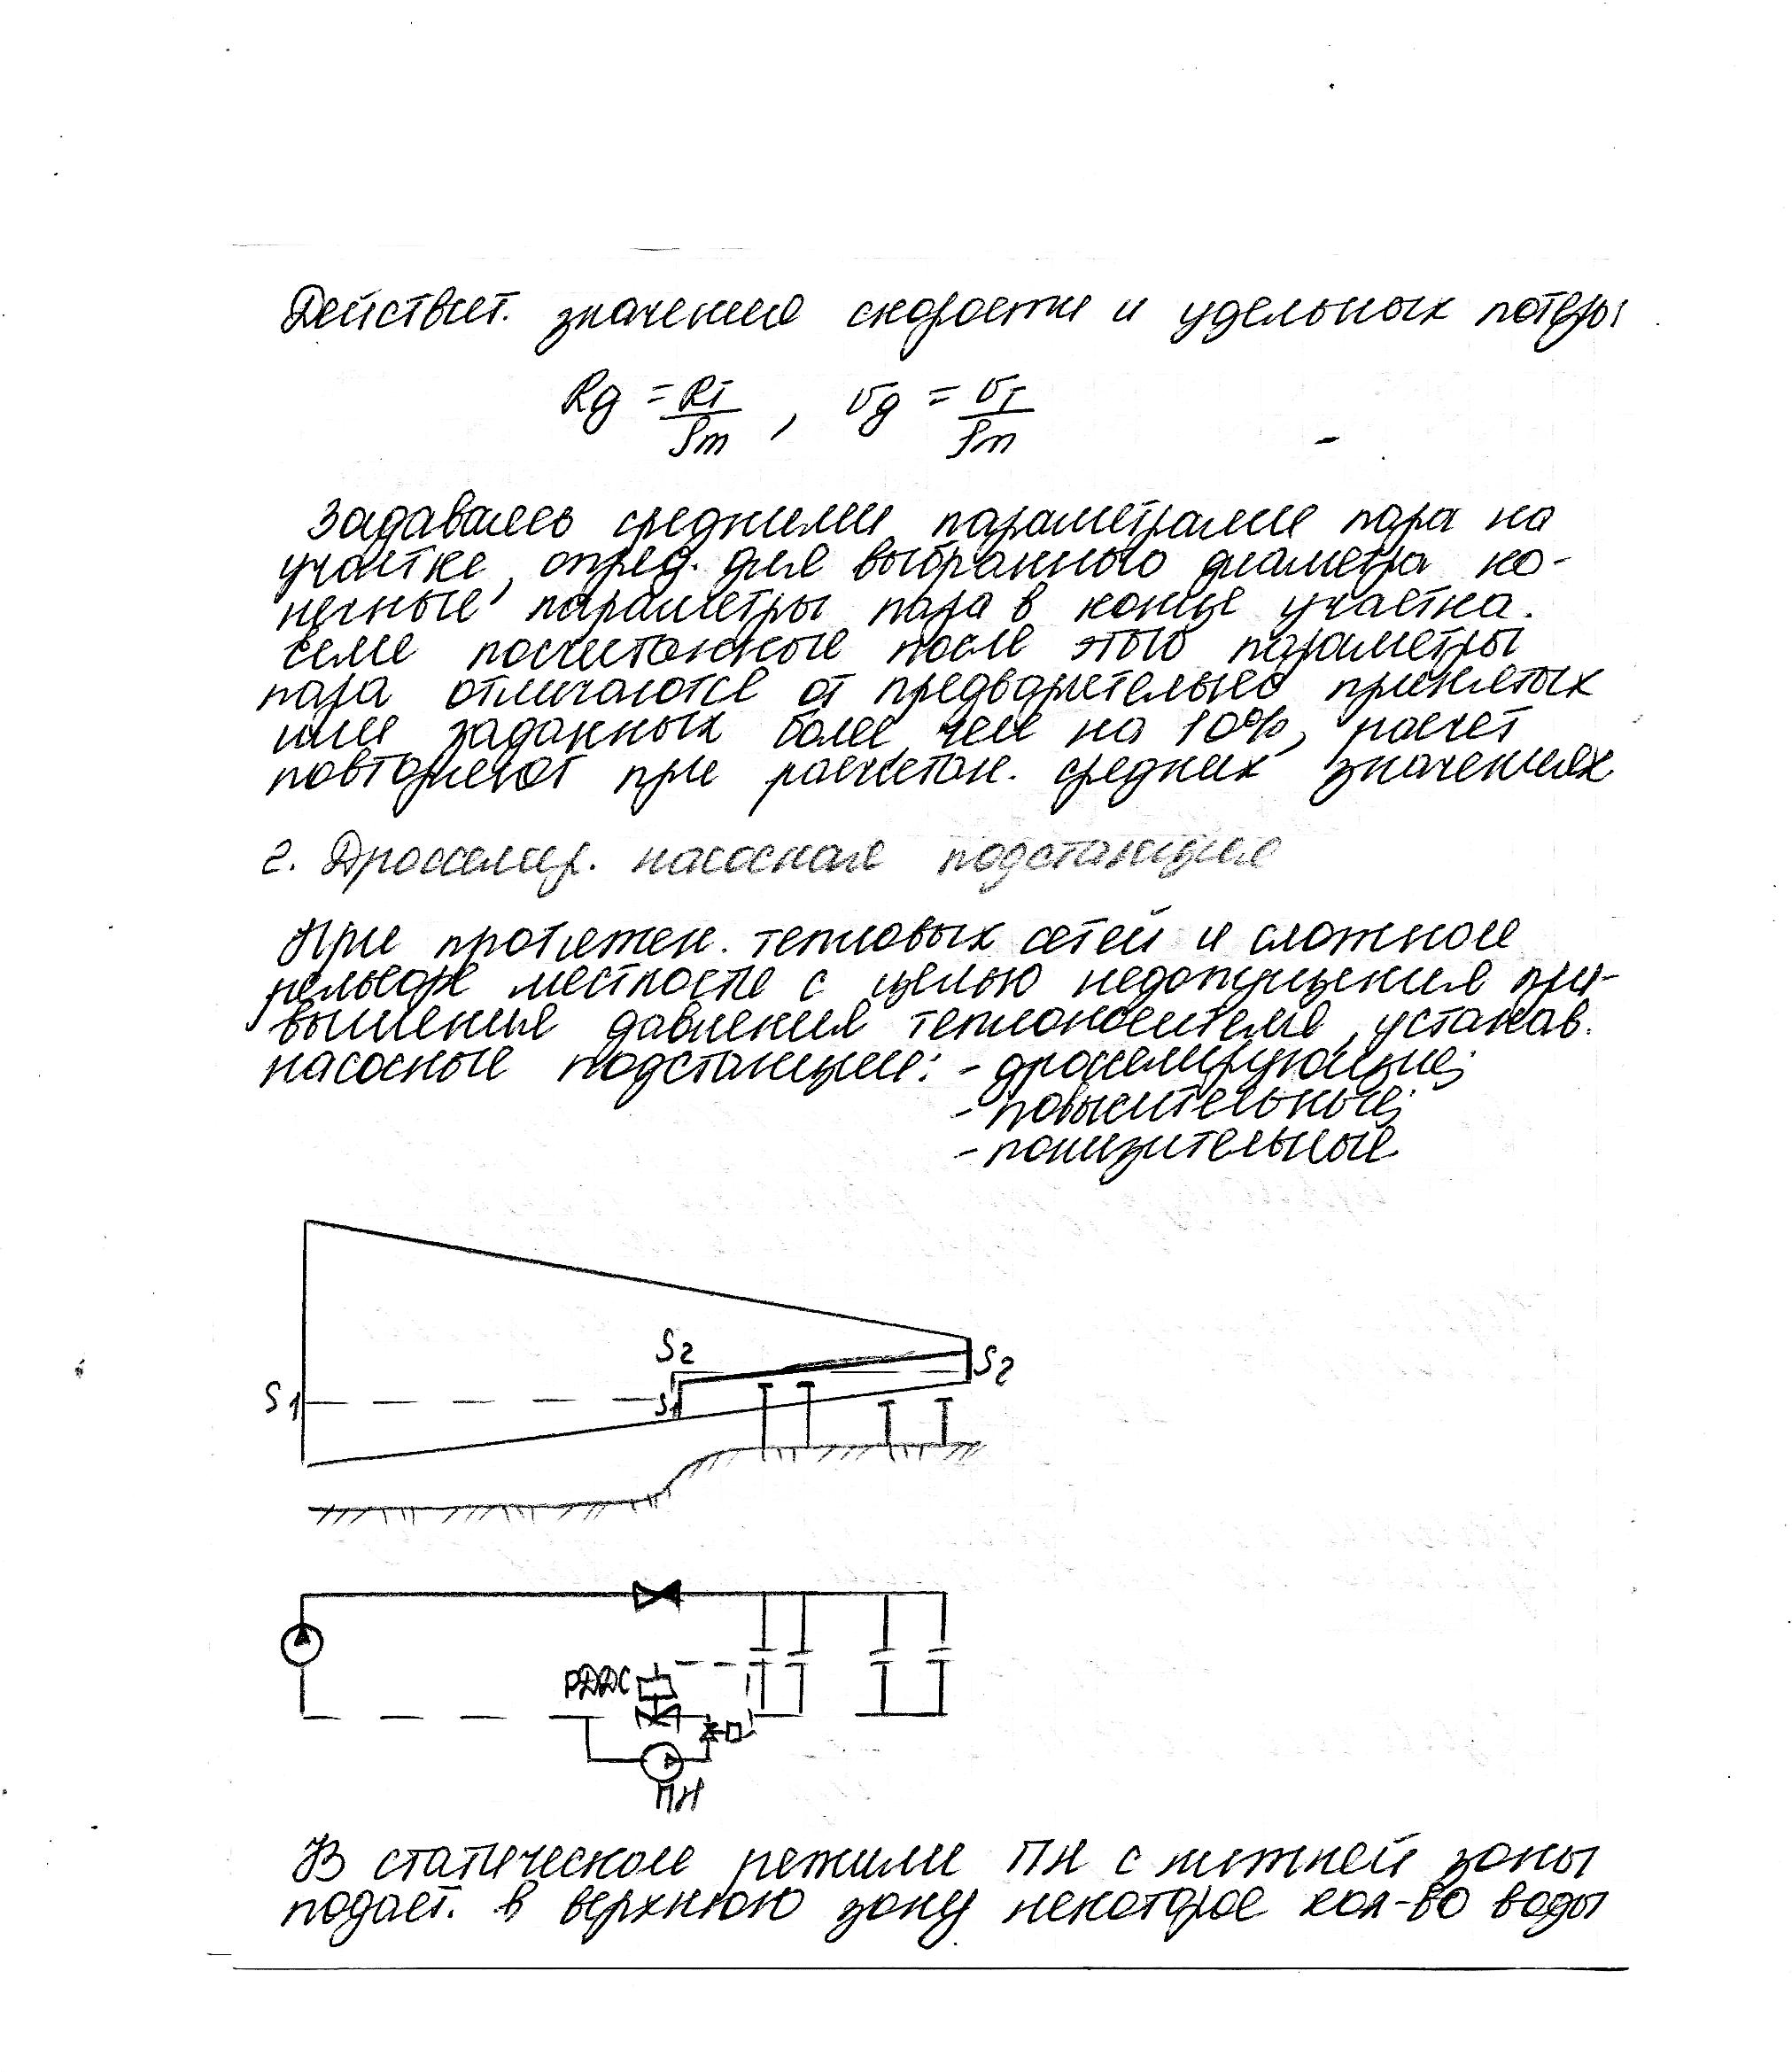 Действит. значения скорости и удельных потерь
Rд = Rт/ρm , υд = υт/ρm
Задаваясь средними параметрами пара на
участке, опред. для выбранного диаметра ко-
нечные параметры пара в конце участка.
Если посчитанные после этого параметры
пара отличаются от предварительно принятых
или заданных более, чем на 10%, расчет
повторяют при рассчитан. средних значениях
2. Дросселир. насосная подстанция
При протяжен. тепловых сетей и сложном
рельефе местности с целью недопущения пре-
вышения давления теплоносителя, устанав.
насосные подстанции: - дросселирующие;
- повысительные;
- понизительные
S2
S2
S1
S1
РДДС
ПН
В статическом режиме ПН с нижней зоны
подает. в верхнюю зону некоторое кол-во воды